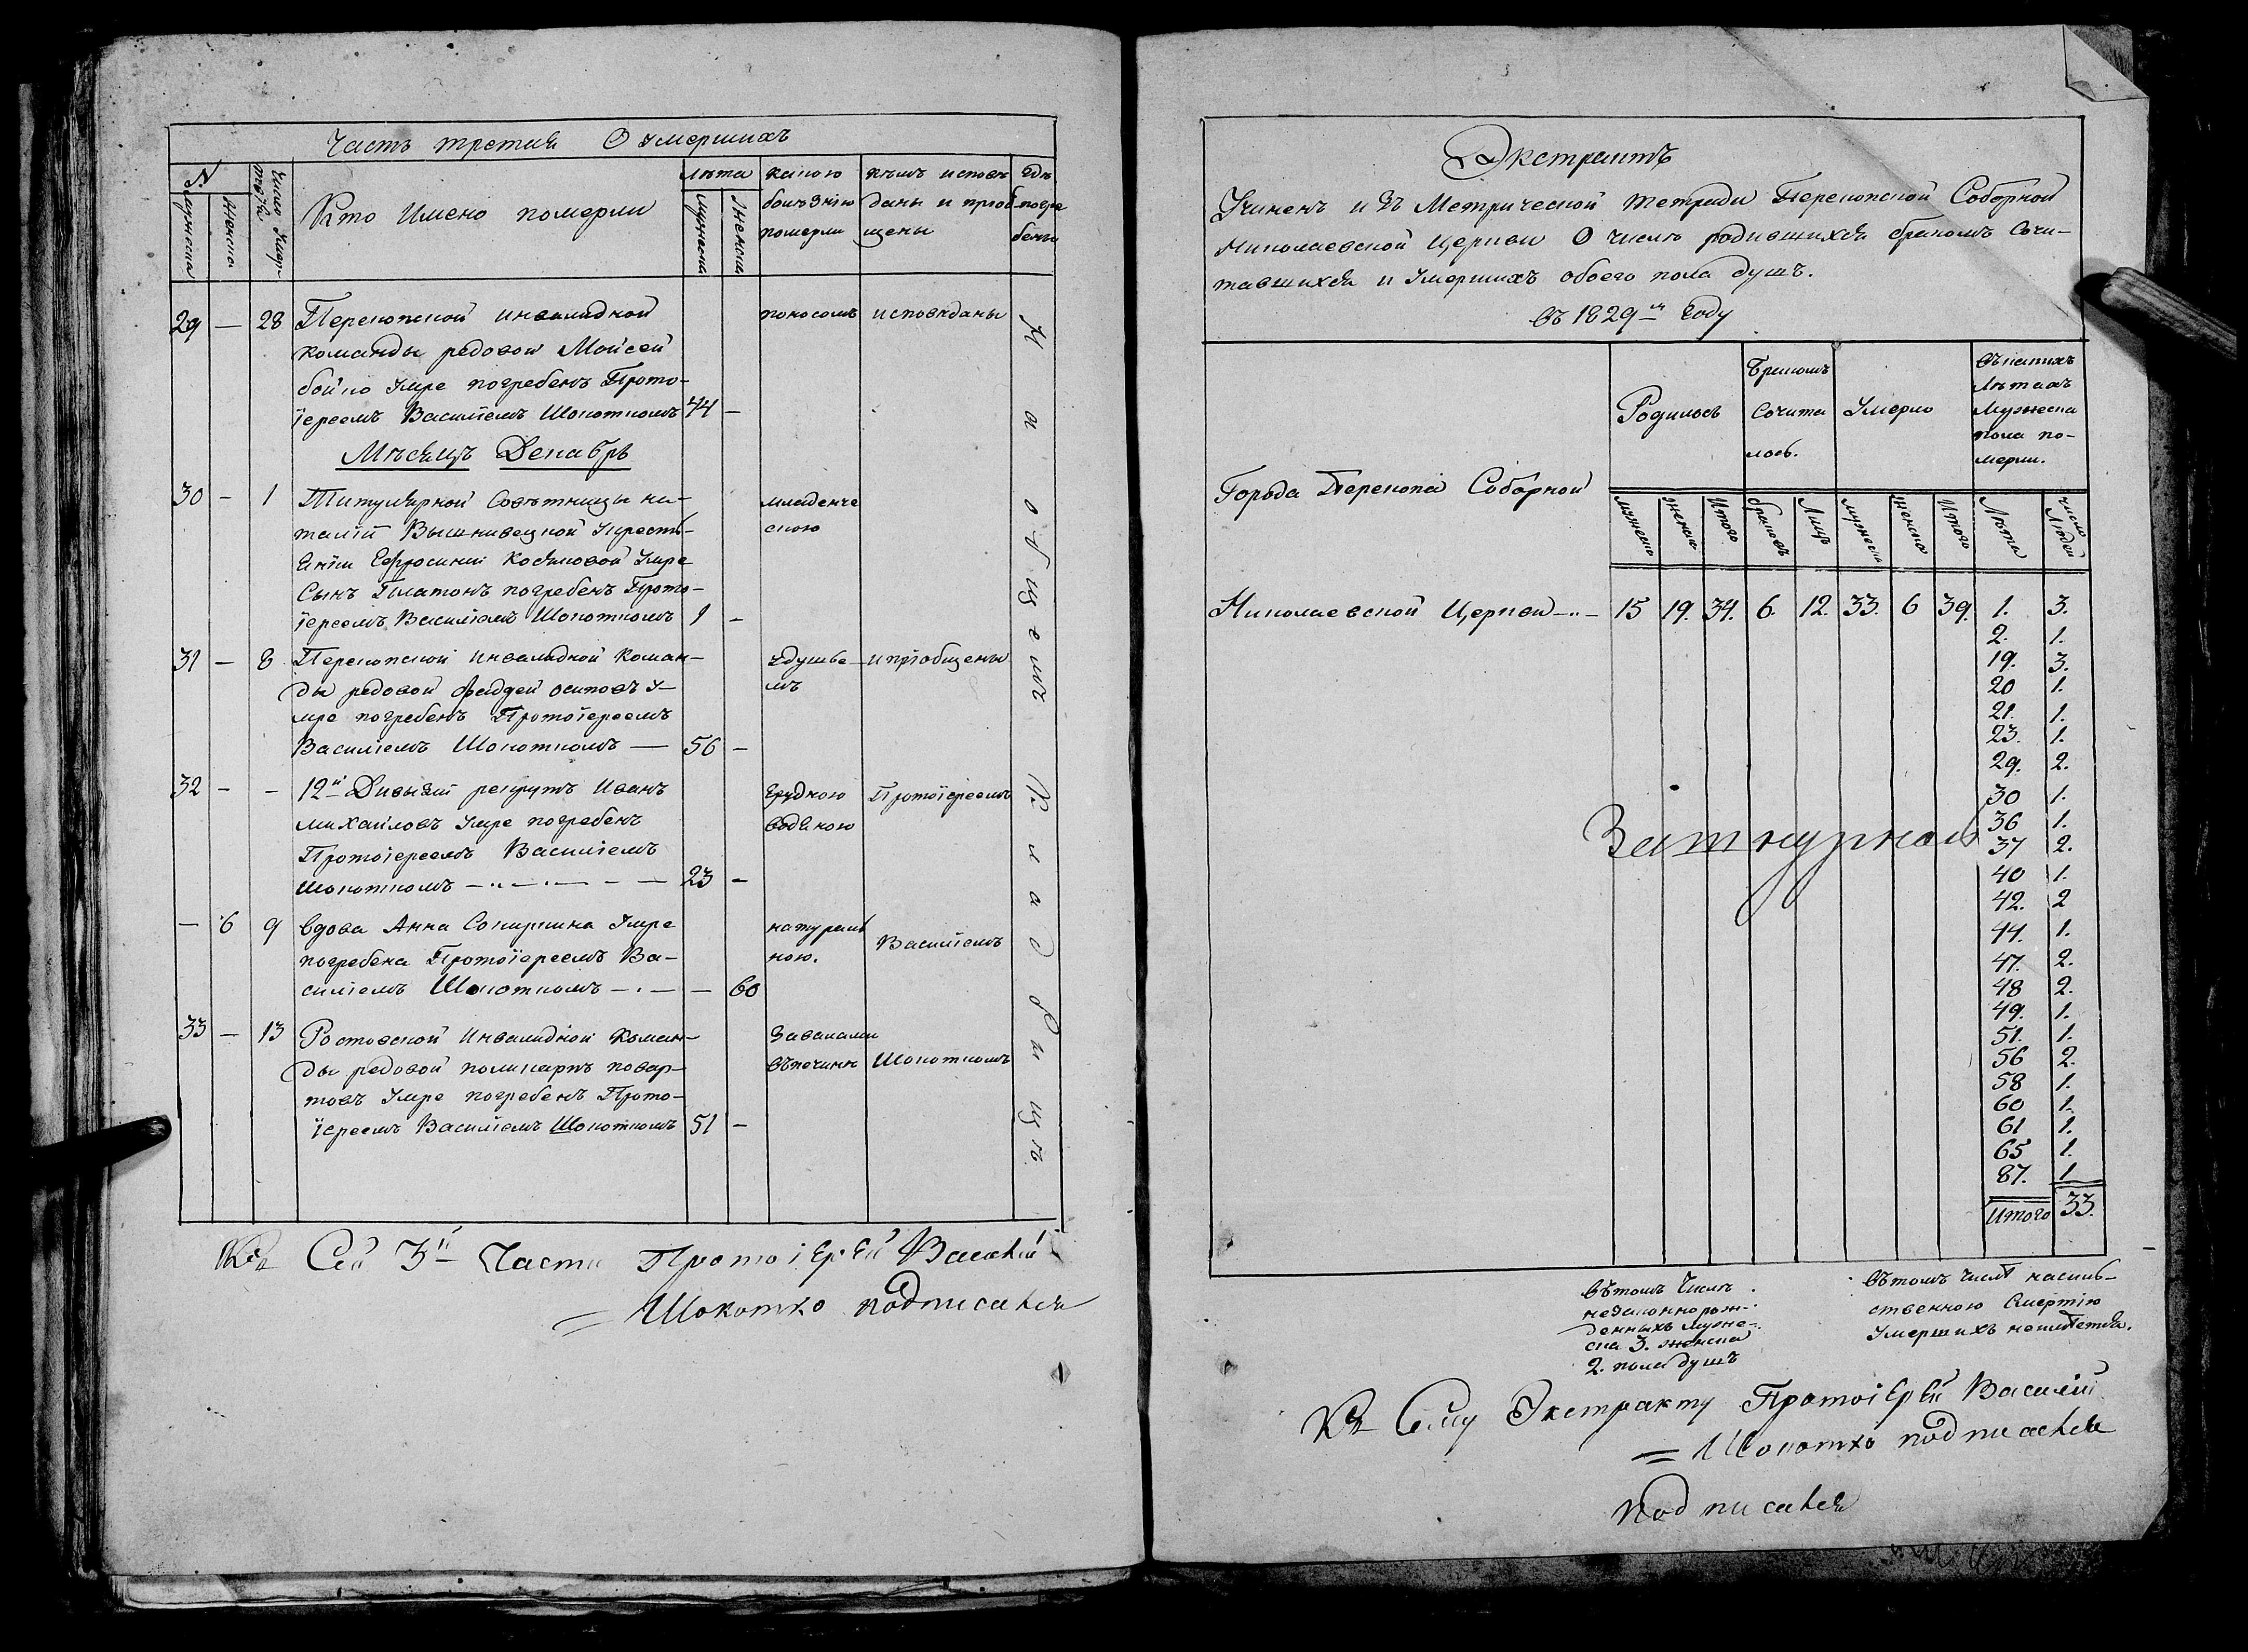 Часть третия О умершихъ
№
мужеска
женска
Число умер-
шихъ
Кто Имено померли
лѣта
мужеска
женска
какою
болѣзнію
померли
кѣмъ исповѣ
даны и пріоб
щены
гдѣ
погре
бены
29 — 28 Перекопской инвалидной
команды редовой Мойсей
бойко умре погребенъ Прото-
іереемъ Василіемъ Шокоткомъ 44 —
поносомъ исповѣданы
Мѣсяцъ Декабрь
30 — 1 Титулярной Совѣтницы на-
таліи Вышнивецкой кресть-
янки Ефросиніи Умре
Сынъ Платонъ погребенъ Прото-
іереемъ Василіемъ Шокоткомъ 1 —
младенче
скою
31 — 8 Перекопской инвалидной Коман-
ды редовой Фаддей осиповъ у-
мре погребенъ Протоіереемъ
Василіемъ Шокоткомъ — 56 —
удушье
мъ
и пріобщены
32 - - 12й Дивызіи рекрутъ Иванъ
михайловъ Умре погребенъ
Протоіереемъ Василіемъ
Шокоткомъ — 23 —
грудною
водяною
Протоіереемъ
— 6 9 вдова Анна Умре
погребена Протоіереемъ Ва-
силіемъ Шокоткомъ — — 60
натураль
ною.
Василіемъ
33 — 13 Ростовской Инвалидной Коман-
ды редовой поликарпъ
Умре погребенъ Прото-
іереемъ Василіемъ Шокоткомъ 51 —
Завалами
въпечинк
Шокоткомъ
На общемъ Кладбищѣ
Къ Сей 3й Части Протоіерей Василій
Шокотко подписался
Экстрактъ
Учиненъ изъ Метрической тетради Перекопской Соборной
Николаевской Церкви О числѣ родившихся бракомъ Сочи-
тавшихся и Умершихъ обоего пола душъ.
въ 1829м Году
Родилось
Бракомъ
Сочита
лось.
Умерло
Въ какихъ
Лѣтахъ
Мужеска
пола по-
мерли.
Города Перекопа Соборной
мужеска
женска
Итого
браковъ
Лицъ
мужеска
женска
Итого
Лѣта
число
Людей
Николаевской Церкви 15 19. 34. 6. 12. 33. 6 39. 1. 3.
2. 1.
19. 3.
20 1.
21. 1.
23. 1.
29. 2.
30 1.
36 1.
37 2.
40 1.
42. 2
44. 1.
47. 2.
48 2.
49. 1.
51. 1.
56 2.
58 1.
60 1.
61 1.
65 1.
87. 1
Итого 33.
въ томъ Числѣ
незаконнорож-
денныхъ муже-
ска 3. женска
2. пола душъ
въ томъ числѣ насиль-
ственною Смертію
Умершихъ неимѣется.
Къ Сему Экстракту Протоіерей Василій
Шокотко подписался
подписался